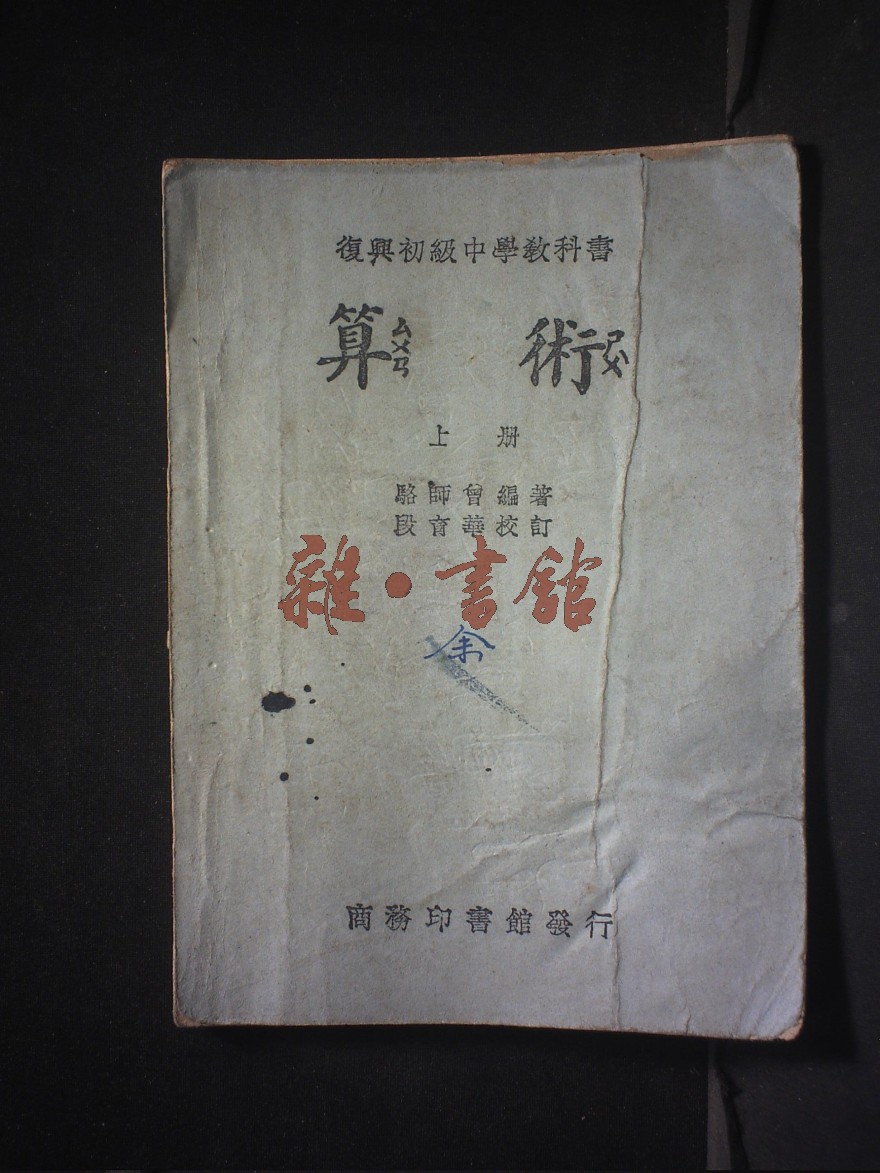 復興初級中學教科書
算ㄙㄨㄢ 術ㄕㄨ
上 册
駱師曾編著
段育華校訂
雜·書館
余
商務印書館發行